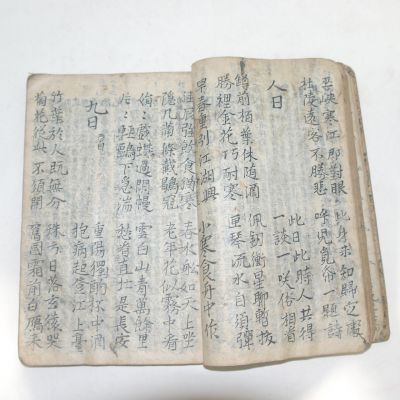 巫峽寒江那對眼 此身未知歸定處
杜陵遠客不勝悲 呼兒覓紙一題詩
人日 此日此時人共得
一談一咲俗相看
樽前栢葉休隨酒 佩劍衝星聊暫拔
勝裡金花巧耐寒 匣琴流水自須彈
早春重引江湖興
小寒食舟中作
佳辰強飲食猶寒 春水船如天上坐
隱几蕭條戴鶡冠 老年花似霧中看
娟:戲蝶過閒幔 雲白山青萬餘里
片:輕鷗下急湍 愁看直北是長安
九日 重陽獨酌杯中酒
抱病起登江上臺
竹葉於人既無分 殊方日落玄猿哭
菊花從此不須開 舊國霜前白鴈來